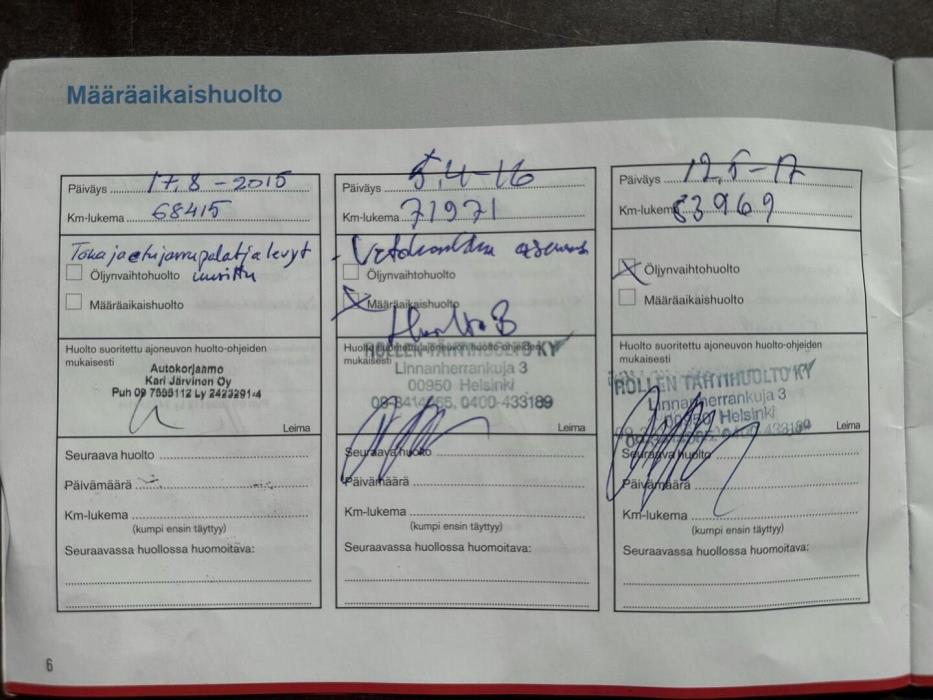 Määräaikaishuolto
Päiväys 17.8 - 2015
Km-lukema 68415
Taka ja etujarrupalat ja levyt
Öljynvaihtohuolto uusittu
Määräaikaishuolto
Huolto suoritettu ajoneuvon huolto-ohjeiden
mukaisesti
Autokorjaamo
Kari Järvinen Oy
Puh 09 7555112 Ly 2423291-4
Leima
Seuraava huolto
Päivämäärä
Km-lukema
(kumpi ensin täyttyy)
Seuraavassa huollossa huomoitava:
Päiväys 5.4-16
Km-lukema 71971
Öljynvaihtohuolto
Määräaikaishuolto
Huolto B
Huolto suoritettu ajoneuvon huolto-ohjeiden
mukaisesti
ROLLEN TÄHTIHUOLTO KY
Linnanherrankuja 3
00950 Helsinki
0400-433189
Leima
Seuraava huolto
Päivämäärä
Km-lukema
(kumpi ensin täyttyy)
Seuraavassa huollossa huomoitava:
Päiväys 12.5-17
Km-lukema 83969
Öljynvaihtohuolto
Määräaikaishuolto
Huolto suoritettu ajoneuvon huolto-ohjeiden
mukaisesti
ROLLEN TÄHTIHUOLTO KY
Linnanherrankuja 3
00950 Helsinki
0400-433189
Leima
Seuraava huolto
Päivämäärä
Km-lukema
(kumpi ensin täyttyy)
Seuraavassa huollossa huomoitava:
6